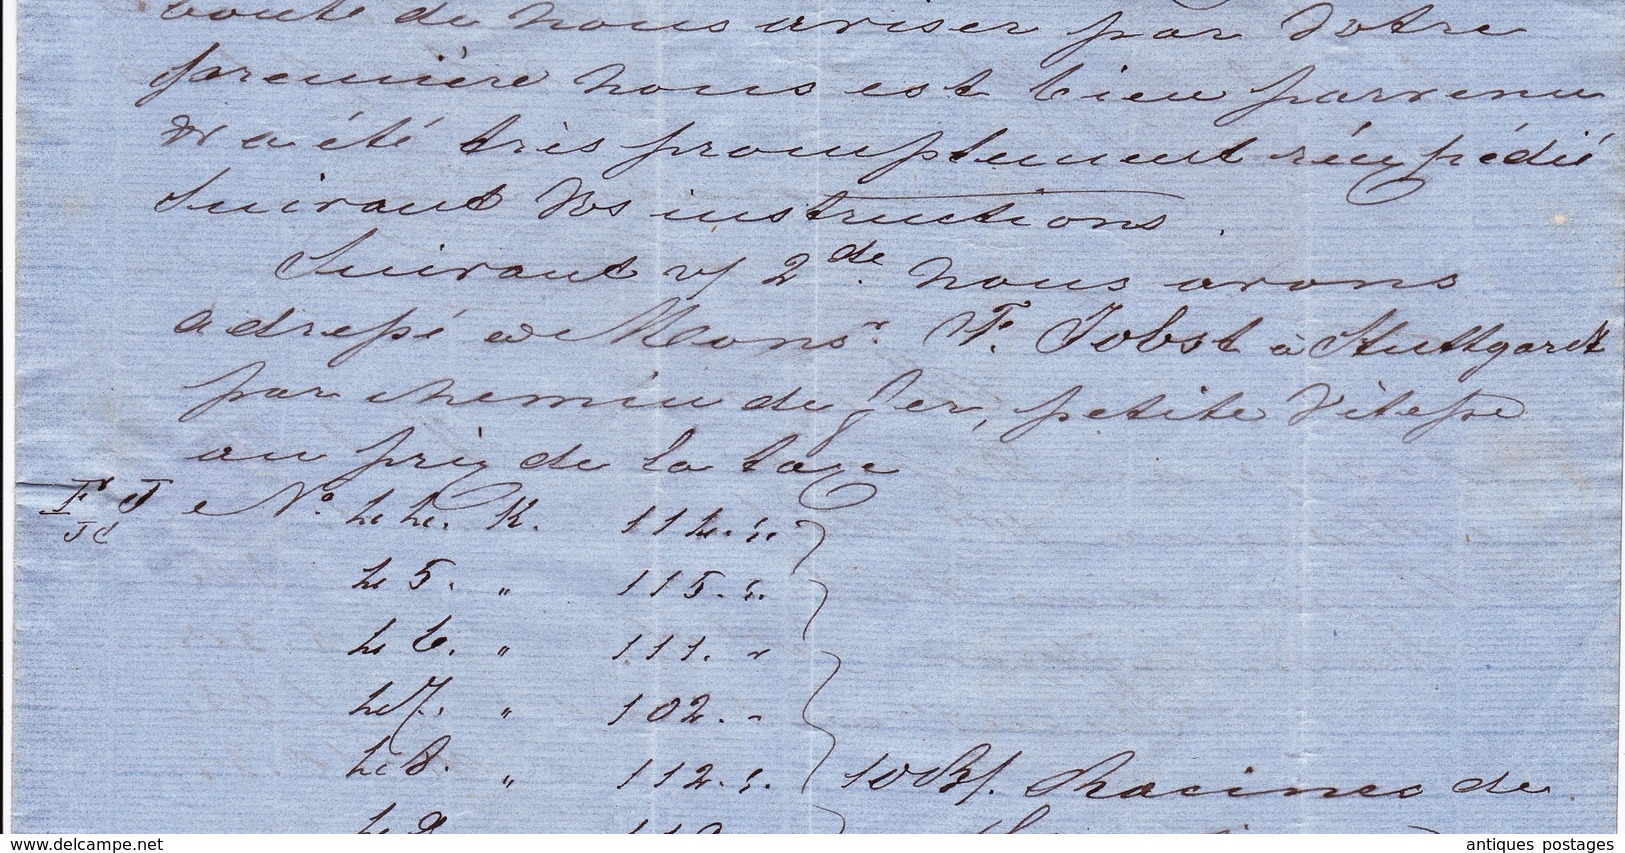 bonté de nous aviser par Votre
première nous est bien parvenu
& a été très promptement réexpédié
Suivant Vos instructions.
Suivant v/ 2de. nous avons
adressé à Monsr. F. Jobst à Stuttgardt
par chemin de fer, petite Vitesse
au prix de la taxe
No. 44. K. 114.
45. " 115.
46. " 111. "
47. " 102. "
48. " 112. 10 Bl/. Racines de
49
delcampe.net
antiques postages